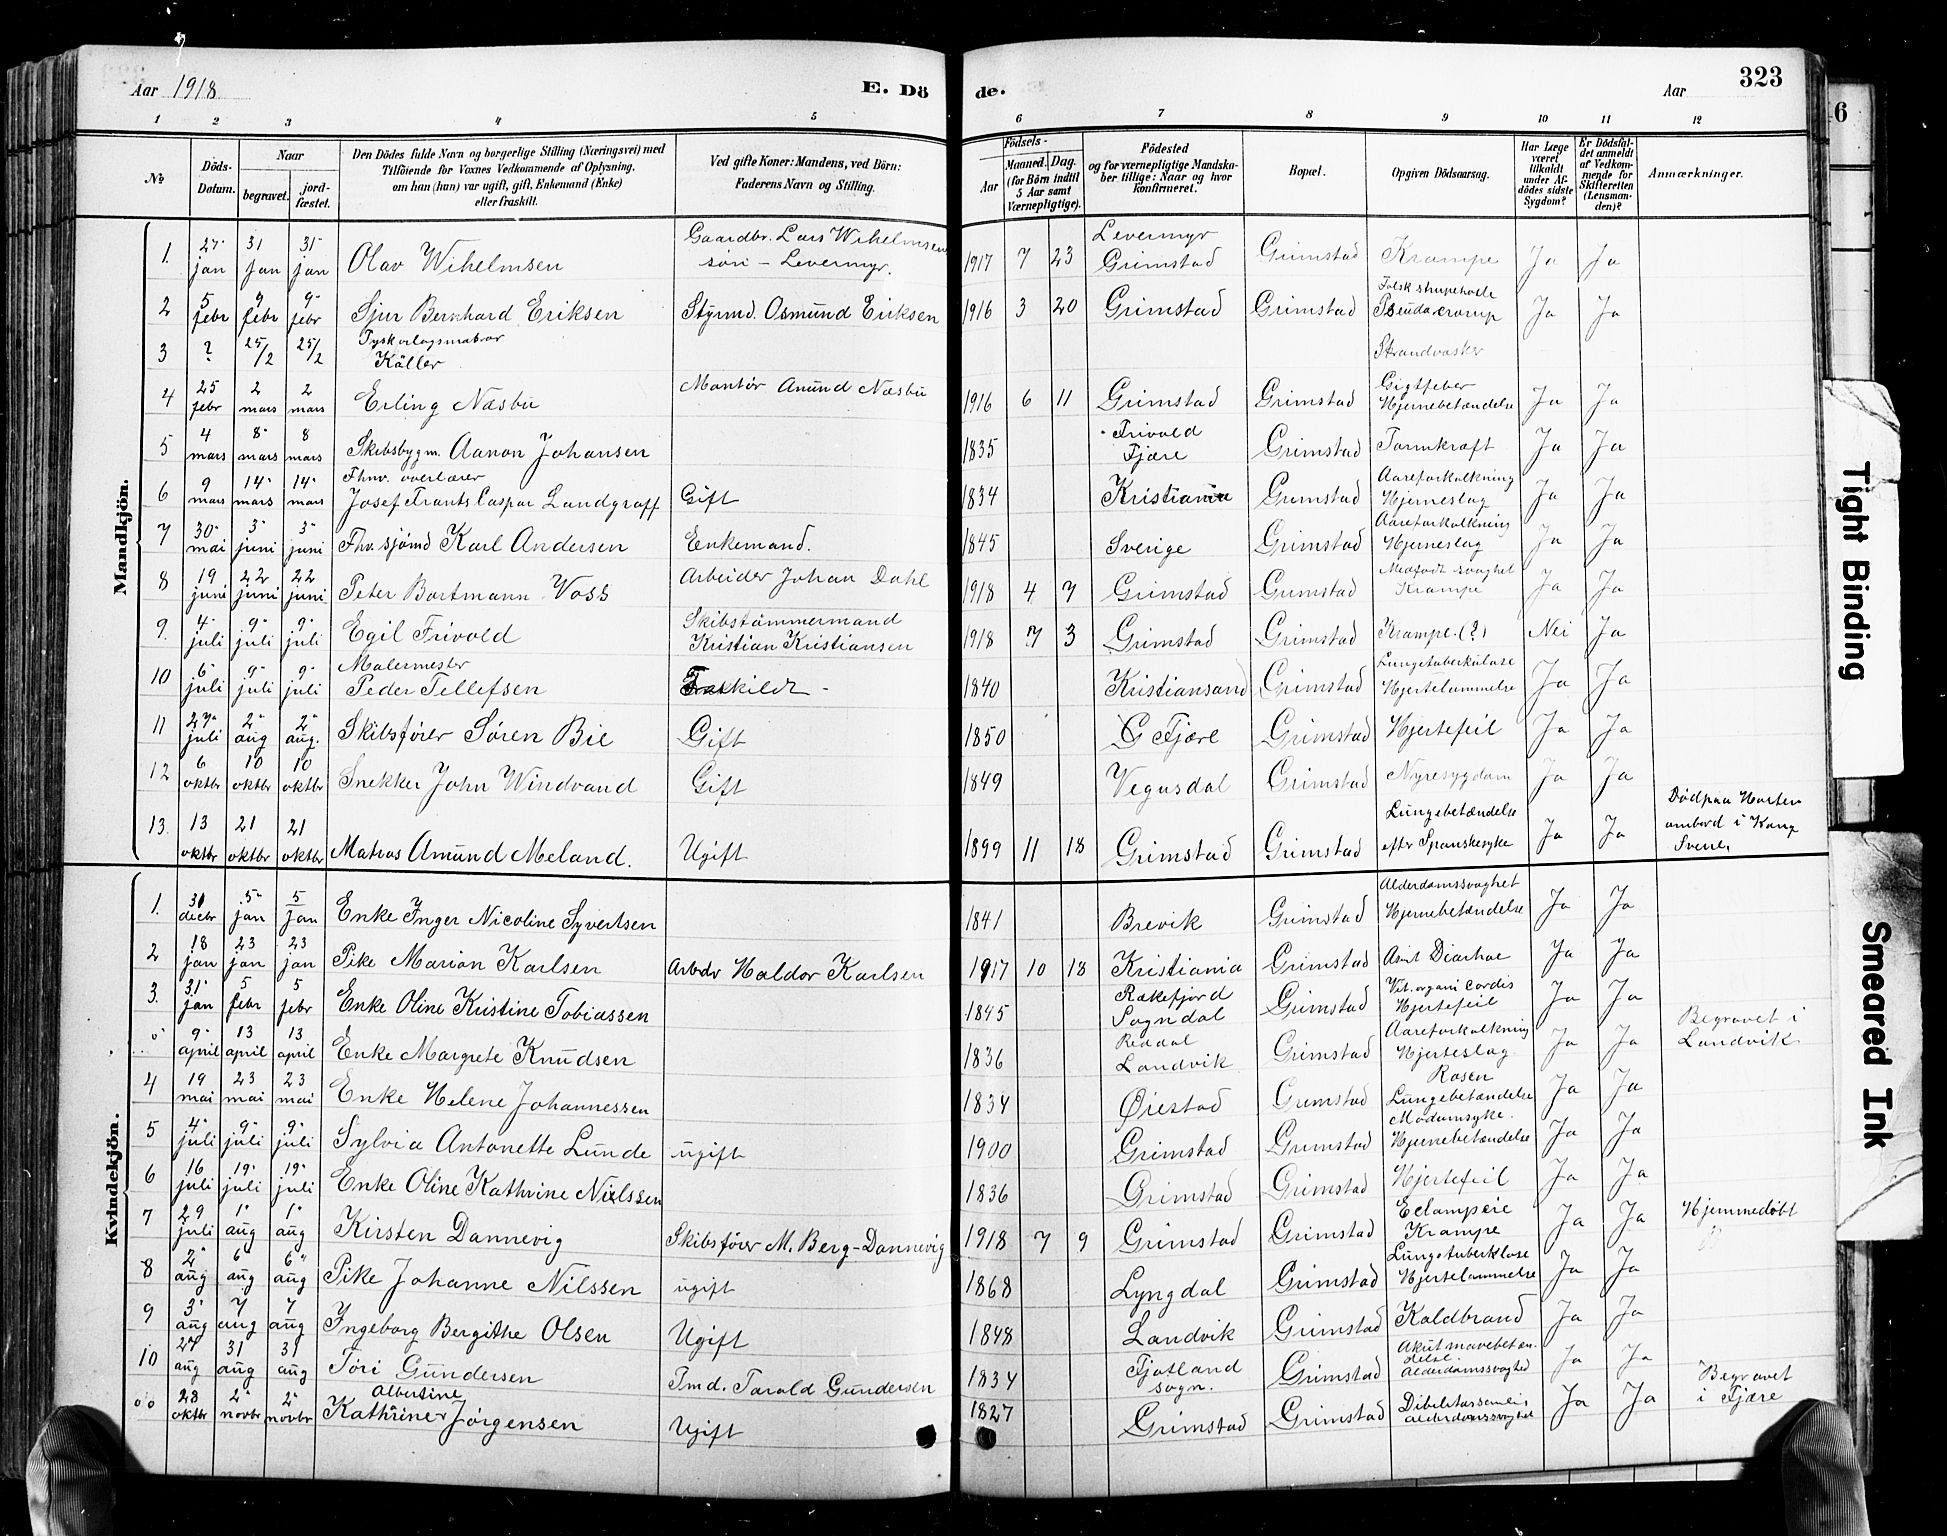 Aar 1918 E. Dö de. Aar 323
1 2 3 4 5 6 7 8 9 10 11 12
No Döds-Datum. Naar begravet. jordfæstet. Den Dödes fulde Navn og borgerlige Stilling (Næringsvei) med Tilföiende for Voxnes Vedkommende af Oplysning, om han (hun) var ugift, gift, Enkemand (Enke) eller fraskilt. Ved gifte Koner: Mandens, ved Börn: Faderens Navn og Stilling. Födsels- Aar Maaned. Dag. (for Börn indtil 5 Aar samt Værnepligtige). Födested og for værnepligtige Mandskaber tillige: Naar og hvor konfirmeret. Bopæl. Opgiven Dödsaarsag. Har Læge været tilkaldt under Afdödes sidste Sygdom? Er Dödsfaldet anmeldt af Vedkommende for Skifteretten (Lensmanden)? Anmærkninger.
Mandkjön.
1. 27 jan 31 jan 31 jan Olav Wihelmsen Gaardbr. Lars Wihelmsen søn - Levermyr. 1917 7 23 Levermyr Grimstad Grimstad Krampe Ja Ja
2 5 febr 9 febr 9 febr Sjur Bernhard Eriksen Styrmd. Osmund Eriksen 1916 3 20 Grimstad Grimstad Falsk strupehoste Pseudocroup Ja Ja
3 ? 25/2 25/2 Käller Strandvasker
4 25 febr 2 mars 2 mars Erling Næsbu Montør Anund Næsbu 1916 6 11 Grimstad Grimstad Gigtfeber Hjernebetændelse Ja Ja
5 4 mars 8 mars 8 mars Skibsbygm. Aanon Johansen 1835 Frivold Fjære Grimstad Tarmkræft Ja Ja
6 9 mars 14 mars 14 mars Fhnv. overlærer Josef Frants Caspar Landgraff Gift 1834 Kristiania Grimstad Aareforkalkning Hjerneslag Ja Ja
7 30 mai 3 juni 3 juni Fhv. sjømd Karl Andersen Enkemand. 1845 Sverige Grimstad Aareforkalkning Hjerneslag Ja Ja
8 19 juni 22 juni 22 juni Peter Bartmann Voss Arbeider Johan Dahl 1918 4 7 Grimstad Grimstad Medfødt svaghet Krampe Ja Ja
9. 4 juli 9 juli 9 juli Egil Frivold Skibstømmermand Kristian Kristiansen 1918 7 3 Grimstad Grimstad Krampe (?) Nei Ja
10 6 juli 9 juli 9 juli Malermester Peder Tellefsen Fraskildt - 1840 Kristiansand Grimstad Lungetuberkulose Hjertelammelse Ja Ja
11 27 juli 2 aug 2 aug. Skibsfører Søren Bie Gift 1850 Fjære Grimstad Hjertefeil Ja Ja
12 6 oktbr 10 oktbr 10 oktbr Snekker John Windvand Gift 1849 Vegusdal Grimstad Nyresygdom Ja Ja
13. 13 oktbr 21 oktbr 21 oktbr Matros Amund Meland. Ugift 1899 11 18 Grimstad Grimstad Lungebetændelse efter Spanskesyke Ja Ja Död paa Horten ombord i Kong Sverre
Kvindekjön.
1. 31 decbr 5 jan 5 jan Enke Inger Nicoline Syvertsen 1841 Brevik Grimstad Alderdomssvaghet Hjernebetændelse Ja Ja
2 18 jan 23 jan 23 jan Pike Marion Karlsen Arbdr Haldor Karlsen 1917 10 18 Kristiania Grimstad Diarhoe Ja Ja
3. 31 jan 5 febr 5 febr Enke Oline Kristine Tobiassen 1845 Rækefjord Sogndal Grimstad Vit. organi cordis Hjertefeil Ja Ja
o 9 april 13 april 13 april Enke Margrete Knudsen 1836 Reddal Landvik Grimstad Aareforkalkning Hjerteslag Ja Ja Begravet i Landvik
4 19 mai 23 mai 23 mai Enke Helene Johannessen 1834 Øiestad Grimstad Rosen Lungebetændelse Ja Ja
5 4 juli 9 juli 9 juli Sylvia Antonette Lunde ugift 1900 Grimstad Grimstad Hjernebetændelse Ja Ja
6 16 juli 19 juli 19 juli Enke Oline Kathrine Nilssen 1836 Grimstad Grimstad Hjertefeil Ja Ja
7 29 juli 1 aug 1 aug Kirsten Dannevig Skibsfører M. Berg-Dannevig 1918 7 9 Grimstad Grimstad Eclampsie Krampe Ja Ja Hjemmedøbt
8 2 aug 6 aug 6 aug Pike Johanne Nilssen ugift 1868 Lyngdal Grimstad Lungetuberklose Hjertelammelse Ja Ja
9 3 aug 7 aug 7 aug Ingeborg Bergithe Olsen Ugift 1848 Landvik Grimstad Koldbrand Ja Ja
10 27 aug 31 aug 31 aug Tøri Gundersen Tmd. Tarald Gundersen 1834 Fjotland sogn. Grimstad Akut mavebetændelse. Alderdomssvaghed Ja Ja
oo 28 oktbr 2 novbr 2 novbr Kathrine Albertine Jørgensen Ugift 1827 Grimstad Grimstad Alderdomssvaghet Ja Ja Begravet i Fjære
6
Tight Binding
Smeared Ink